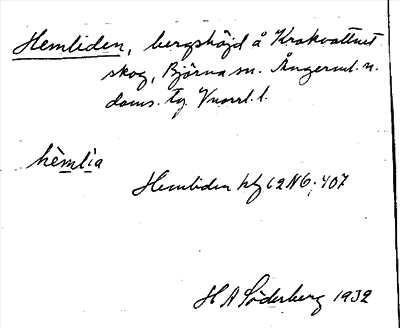 Hemliden, bergshöjd å Krokvattnet
skog, Björna sn. Ångerml. n.
doms. tg Vnorrl. l.
hèmlìa
Hemliden hly 62 N6; 407
H A Söderberg 1932